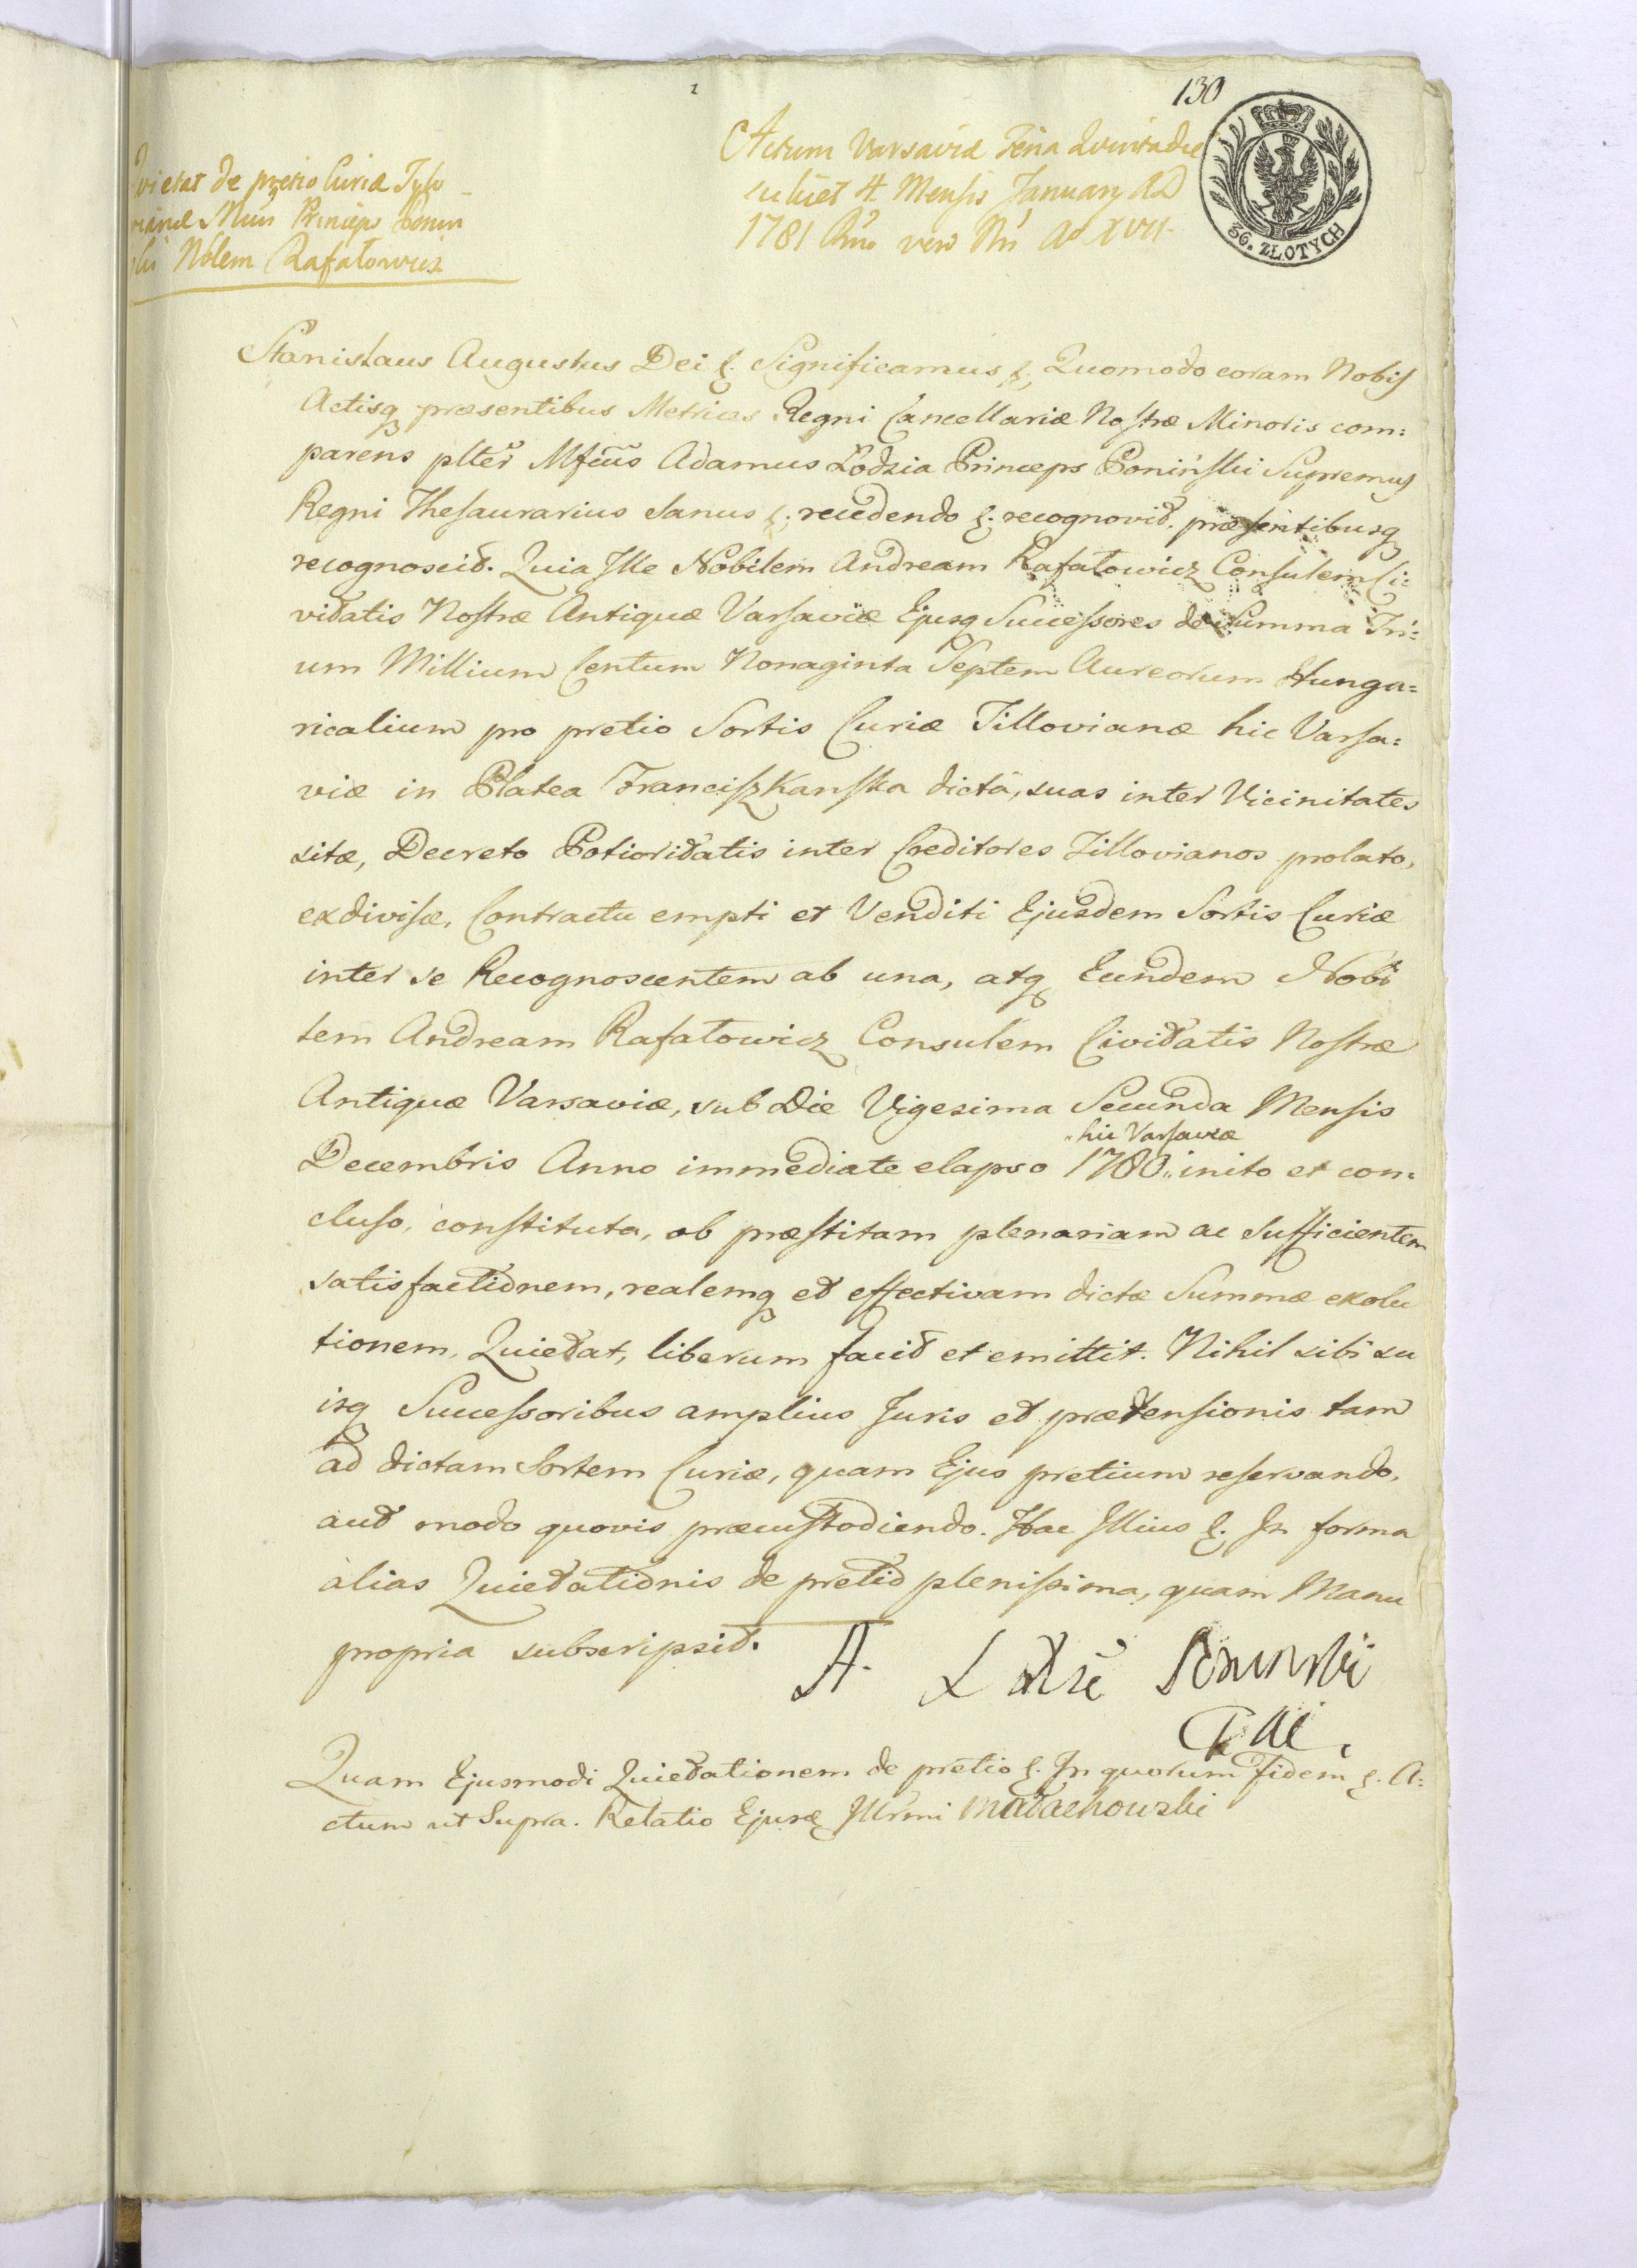 130
Quietat de pretio Curiæ Tylo
vianæ Mcus Princeps Ponin
ski Nblem Rafałowicz
Actum Varsaviæ Feria Quinta die
scilicet 4 Mensis January AD
1781 Rño vero Nri Aõ XVII.
36. ZŁOTYCH
Stanislaus Augustus Dei &. Significamus &, Quomodo coram Nobis
Actisq præsentibus Metrices Regni Cancellariæ Nostræ Minoris com:
parens plter Mfcus Adamus Łodzia Princeps Poniński Supremus
Regni Thesaurarius Sanus &. recedendo &. recognovit. præsentibusq
recognoscit. Quia Ille Nobilem Andream Rafałowicz Consulem Ci:
vitatis Nostræ Antiquæ Varsaviæ Ejusq Successores de Summa Tri:
um Millium Centum Nonaginta Septem Aureorum Hunga=
ricalium pro pretio Sortis Curiæ Tillovianæ hic Varsa:
viæ in Platea Franciszkanska dictâ, suas inter Vicinitates
sitæ, Decreto Potioritatis inter Creditores Tillovianos prolato,
exdivisæ, Contractu empti et Venditi Ejusdem Sortis Curiæ
inter se Recognoscentem ab una, atq Eundem Nobi
lem Andream Rafałowicz Consulem Civitatis Nostræ
Antiquæ Varsaviæ, sub Die Vigesima Secunda Mensis
" hic Varsaviæ
Decembris Anno immediate elapso 1780 " inito et con:
cluso, constituta, ob præstitam plenariam ac Sufficientem
satisfactionem, realemq et effectivam dictæ Summæ exolu
tionem, Quietat, liberum facit et emittit. Nihil sibi su
isq Successoribus amplius Juris et prætensionis tam
ad dictam Sortem Curiæ, quam Ejus pretium reservando,
aut modo quovis præcustodiendo. Hac Illius &. In forma
alias Quietationis de pretio plenissima, quam Manu
propria subscripsit.
A. Łodzi Poninski
Quam Ejusmodi Quietationem de pretio &. In quorum Fidem &. A:
ctum ut Supra. Relatio Ejusd Illrmi Małachowski